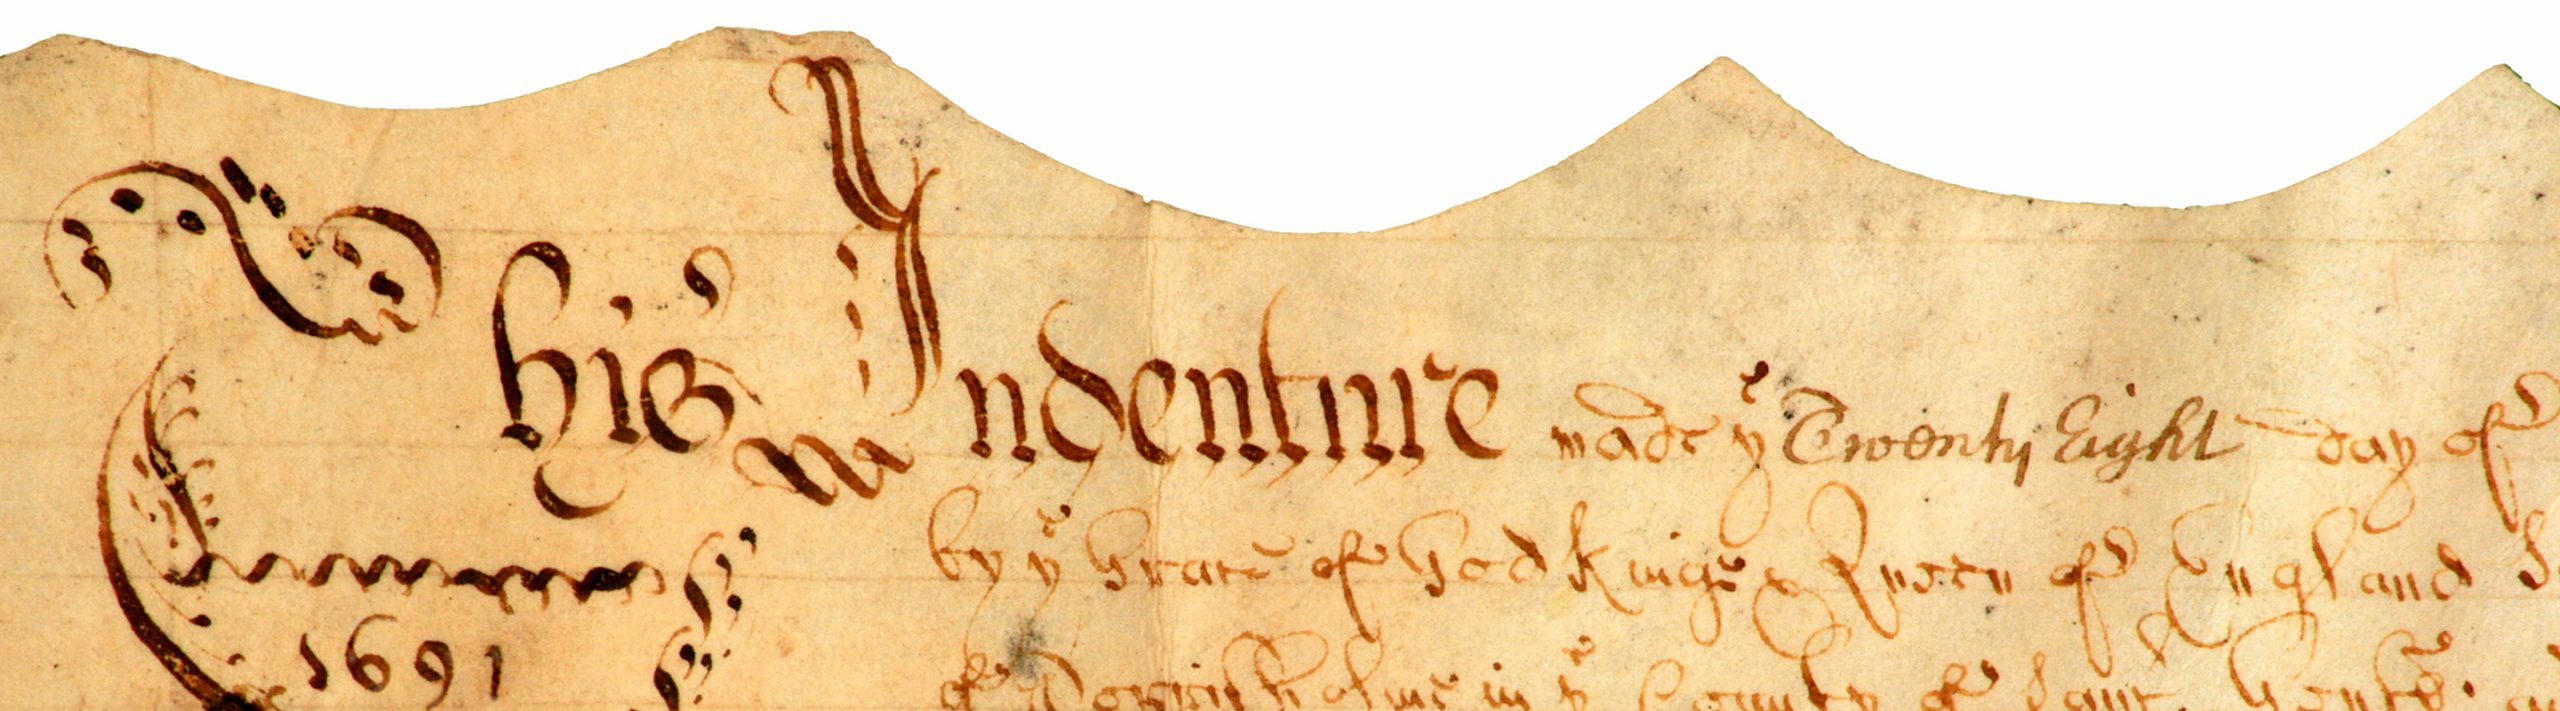 This Indenture made yͤ Twenty Eight day of
by yͤ Grace of God King & Queen of England
1691
of in yͤ County of